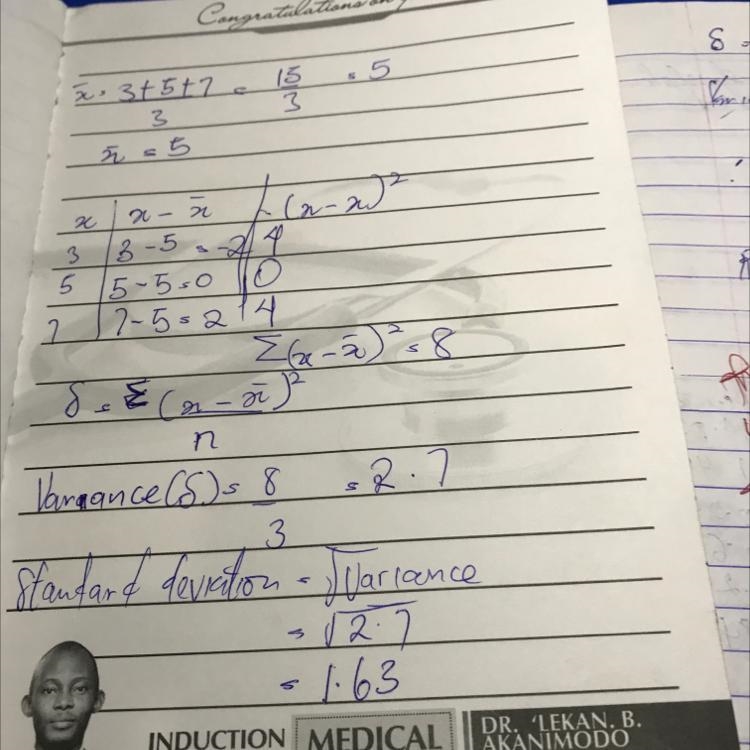 Congratulations on
x̄ = 3+5+7 = 15 = 5
3 3
x̄ = 5
x x - x̄ (x-x)²
3 3-5 = -2 4
5 5-5=0 0
7 7-5=2 4
Σ(x-x̄)² = 8
δ = Σ(x-x̄)²
n
Variance(δ) = 8 = 2.7
3
Standard deviation = √Variance
= √2.7
= 1.63
INDUCTION MEDICAL DR. 'LEKAN. B. AKANIMODO
δ =